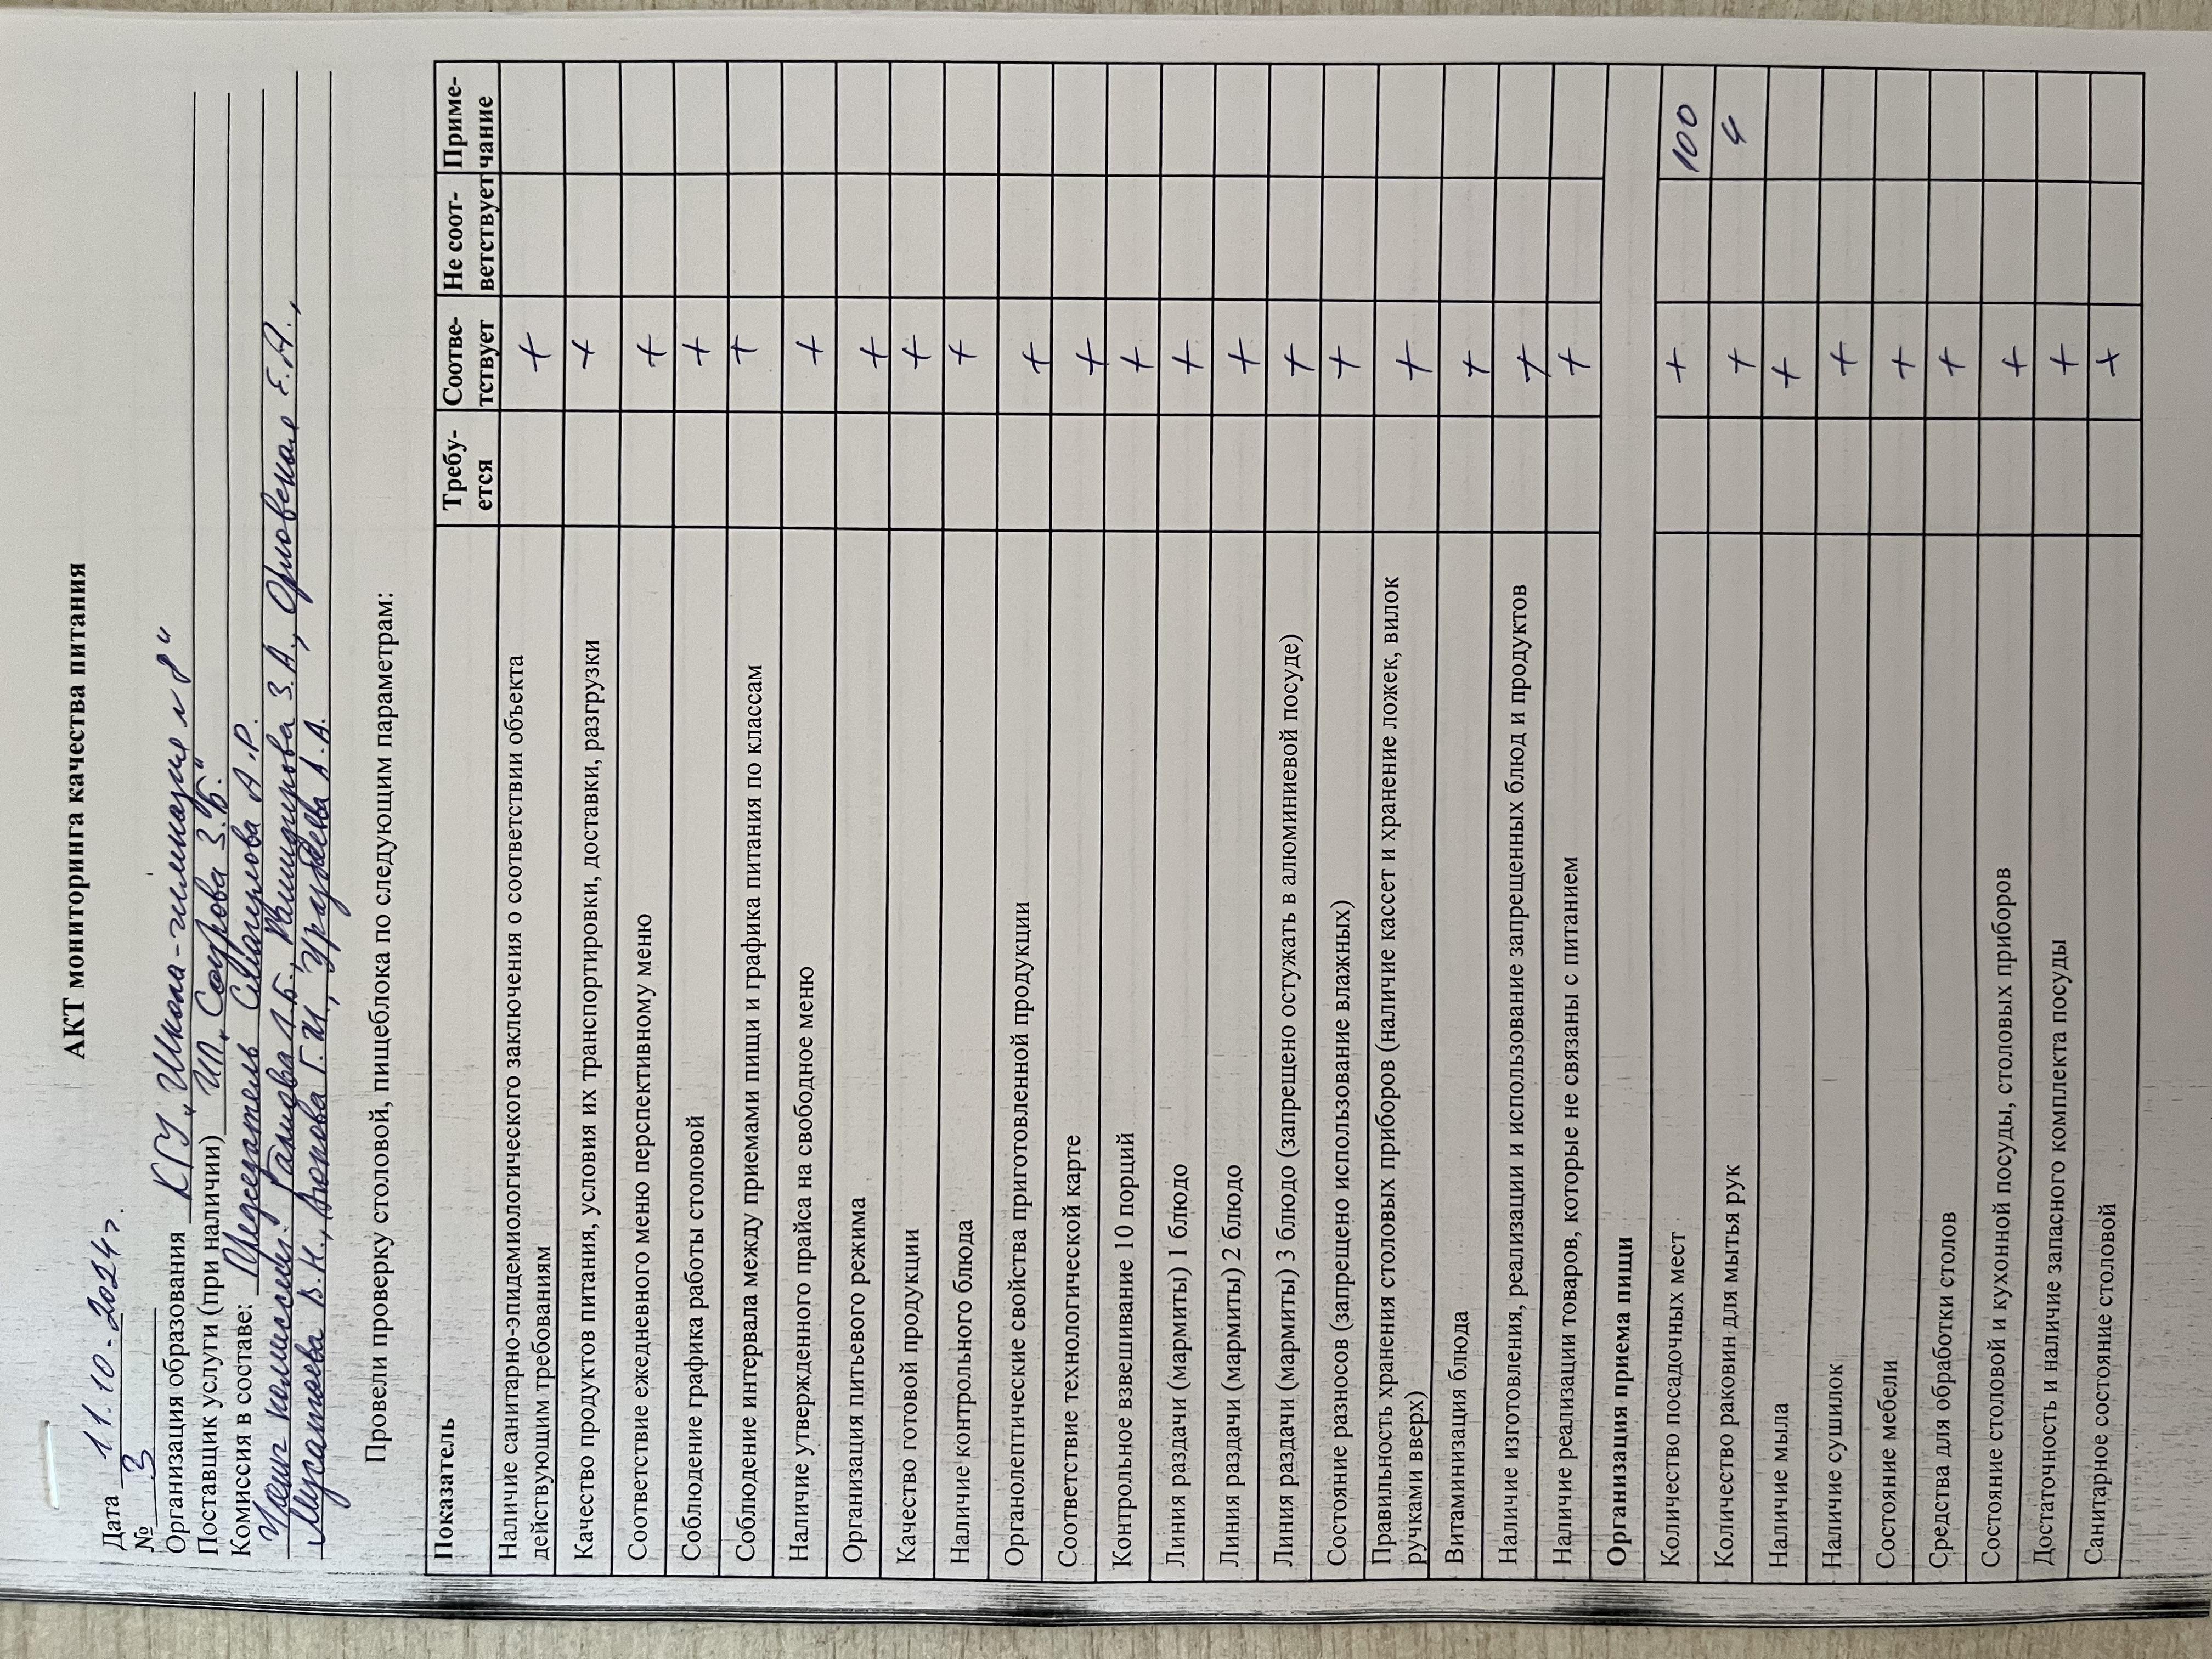 АКТ мониторинга качества питания
Дата 11.10.2024г.
№ 3
Организация образования КГУ "Школа-гимназия №8"
Поставщик услуги (при наличии) ИП
Комиссия в составе: Председатель А.Р.
Члены комиссии: Галиева А.Б., З.А., Орловская Е.А.,
В.Н., Г.И., А.А.
Провели проверку столовой, пищеблока по следующим параметрам:
Показатель Требу-ется Соотве-тствует Не соот-ветствует Приме-чание
Наличие санитарно-эпидемиологического заключения о соответствии объекта
действующим требованиям +
Качество продуктов питания, условия их транспортировки, доставки, разгрузки +
Соответствие ежедневного меню перспективному меню +
Соблюдение графика работы столовой +
Соблюдение интервала между приемами пищи и графика питания по классам +
Наличие утвержденного прайса на свободное меню +
Организация питьевого режима +
Качество готовой продукции +
Наличие контрольного блюда +
Органолептические свойства приготовленной продукции +
Соответствие технологической карте +
Контрольное взвешивание 10 порций +
Линия раздачи (мармиты) 1 блюдо +
Линия раздачи (мармиты) 2 блюдо +
Линия раздачи (мармиты) 3 блюдо (запрещено остужать в алюминиевой посуде) +
Состояние разносов (запрещено использование влажных) +
Правильность хранения столовых приборов (наличие кассет и хранение ложек, вилок
ручками вверх) +
Витаминизация блюда +
Наличие изготовления, реализации и использование запрещенных блюд и продуктов +
Наличие реализации товаров, которые не связаны с питанием +
Организация приема пищи
Количество посадочных мест + 100
Количество раковин для мытья рук + 4
Наличие мыла +
Наличие сушилок +
Состояние мебели +
Средства для обработки столов +
Состояние столовой и кухонной посуды, столовых приборов +
Достаточность и наличие запасного комплекта посуды +
Санитарное состояние столовой +